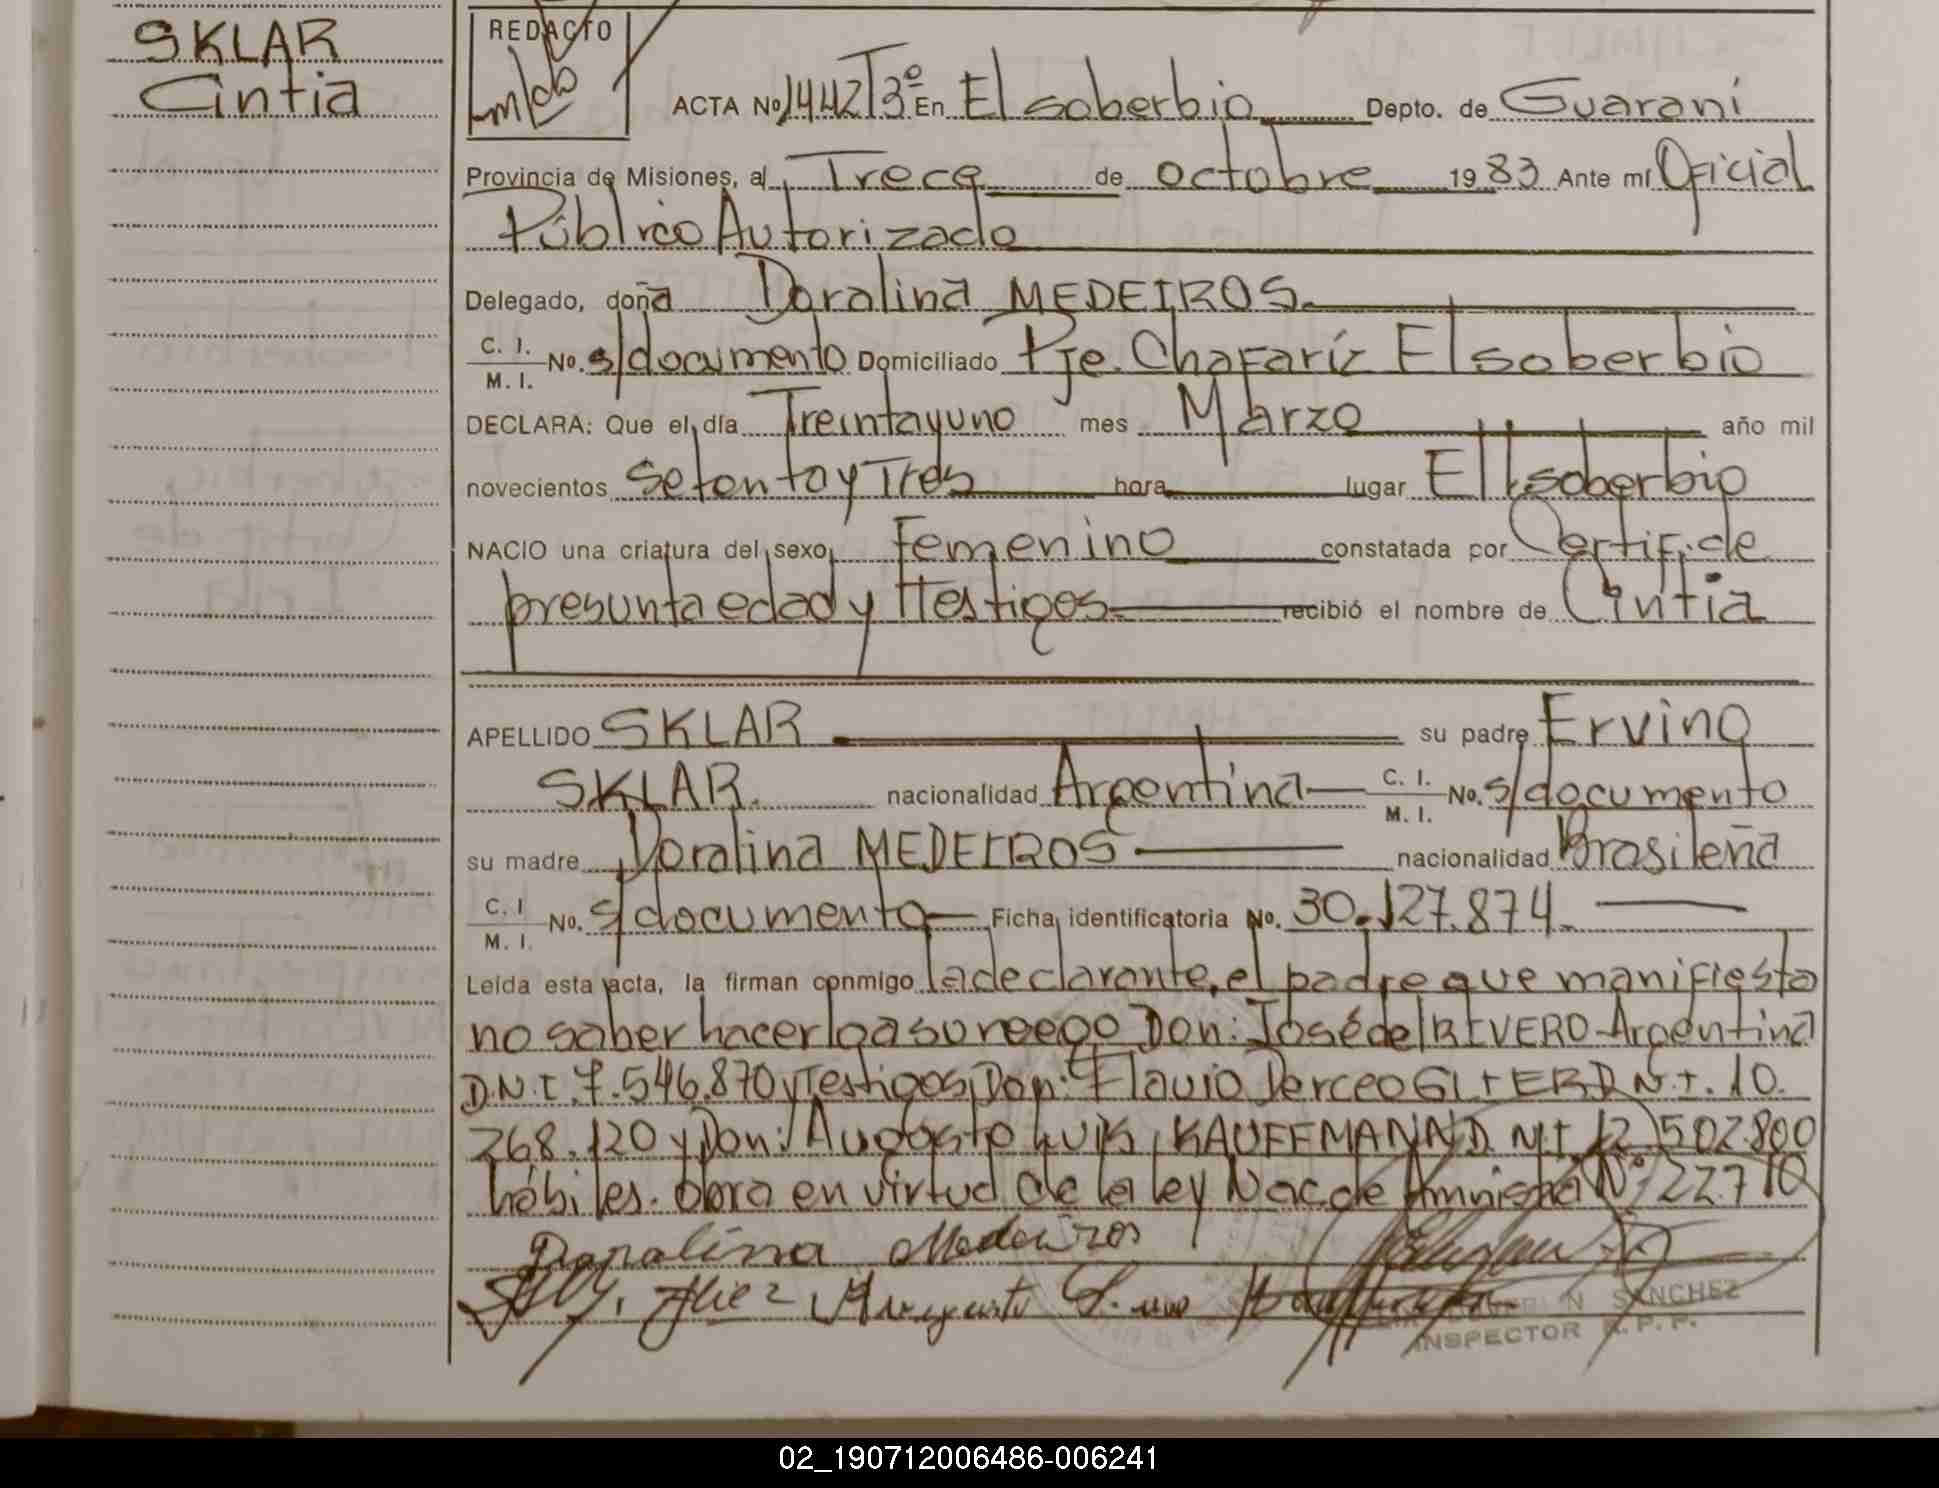 SKLAR
Cintia
REDACTO
ACTA No 1442 T3º En El soberbio Depto. de Guaraní
Provincia de Misiones, al Trece de octubre 1983 Ante mí Oficial
Público Autorizado
Delegado, doña Doralina MEDEIROS
C. I.
M. I. No. s/documento Domiciliado Pje. Chafaríz El soberbio
DECLARA: Que el día Treinta y uno mes Marzo año mil
novecientos setenta y Tres hora lugar El soberbio
NACIO una criatura del sexo Femenino constatada por Certif. de
presunta edad y Testigos recibió el nombre de Cintia
APELLIDO SKLAR su padre Ervino
SKLAR. nacionalidad Argentina C. I.
M. I. No. s/documento
su madre Doralina MEDEIROS nacionalidad Brasileña
C. I
M. I. No. s/documento Ficha identificatoria No. 30.127.874.
Leída esta acta, la firman conmigo la declarante, el padre que manifiesta
no saber hacerlo a su ruego Don: José del RIVERO-Argentina
D.N.I. 7.546.870 y Testigos Don: Flavio Derceo GLIER D.N.I. 10.
268.120 y Don: Augosto LUIS, KAUFFMANN D.N.I. 12.502.800
hábiles. obra en virtud de la ley Nac. de Amnistía Nº 22.710
Doralina Medeiros
SANCHEZ
INSPECTOR R. P. P.
02_190712006486-006241